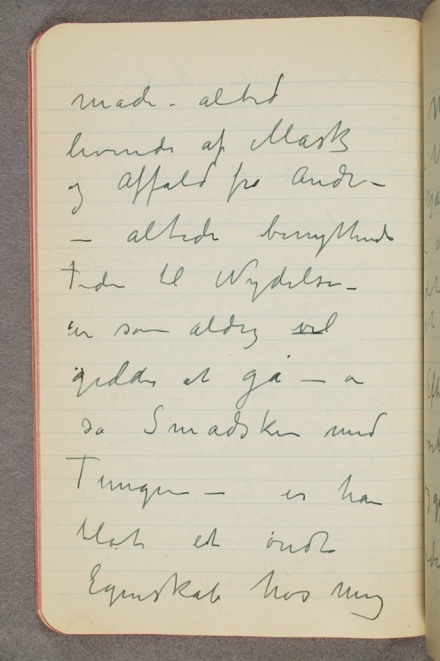 made - altid
levende af Mask
og Affald fra Andre -
- altid benyttende
Tiden til Nydelse -
en som aldrig vil
gidde at gå - o
så Smadsken med
Tungen - er han
blot et ondt
Egenskab hos mig